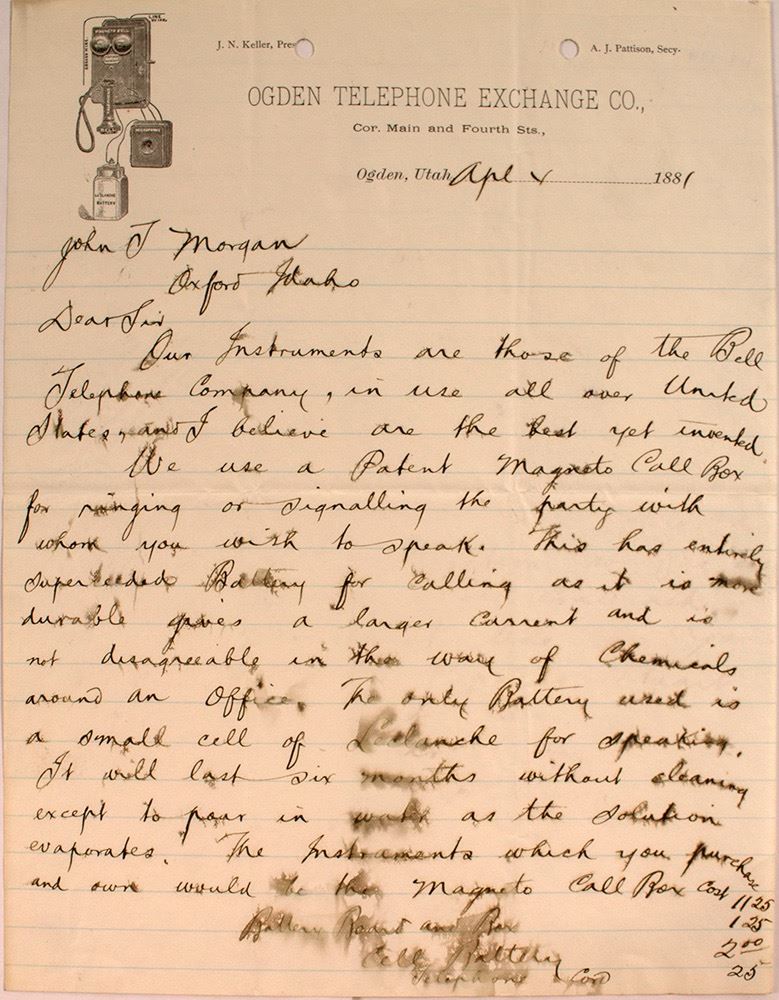 LINE WIRE
GROUND WIRE
MAGNETO BELL
MICROPHONE
LECLANCHE
BATTERY
J. N. Keller, Pres
A. J. Pattison, Secy.
OGDEN TELEPHONE EXCHANGE CO.,
Cor. Main and Fourth Sts.,
Ogden, Utah, Apl 1881
John T Morgan
Oxford Idaho
Dear Sir
Our Instruments are those of the Bell
Telephone Company, in use all over United
States, and I believe are the best yet invented.
We use a Patent Magneto Call Box
for ringing or signalling the party with
whom you wish to speak. This has entirely
superceeded Battery for calling as it is more
durable gives a larger current and is
not disagreeable in the way of Chemicals
around an Office. The only Battery used is
a small cell of Leclanche for speaking.
It will last six months without cleaning
except to pour in water as the solution
evaporates. The Instruments which you purchase
and own would be the Magneto Call Box Cost 11 25
Battery Board and Box 1 25
Cell Battery 2 00
Telephone Cord 25